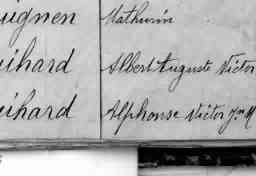 uignen Mathurin
uihard Albert Auguste Victor
uihard Alphonse Victor Jn M